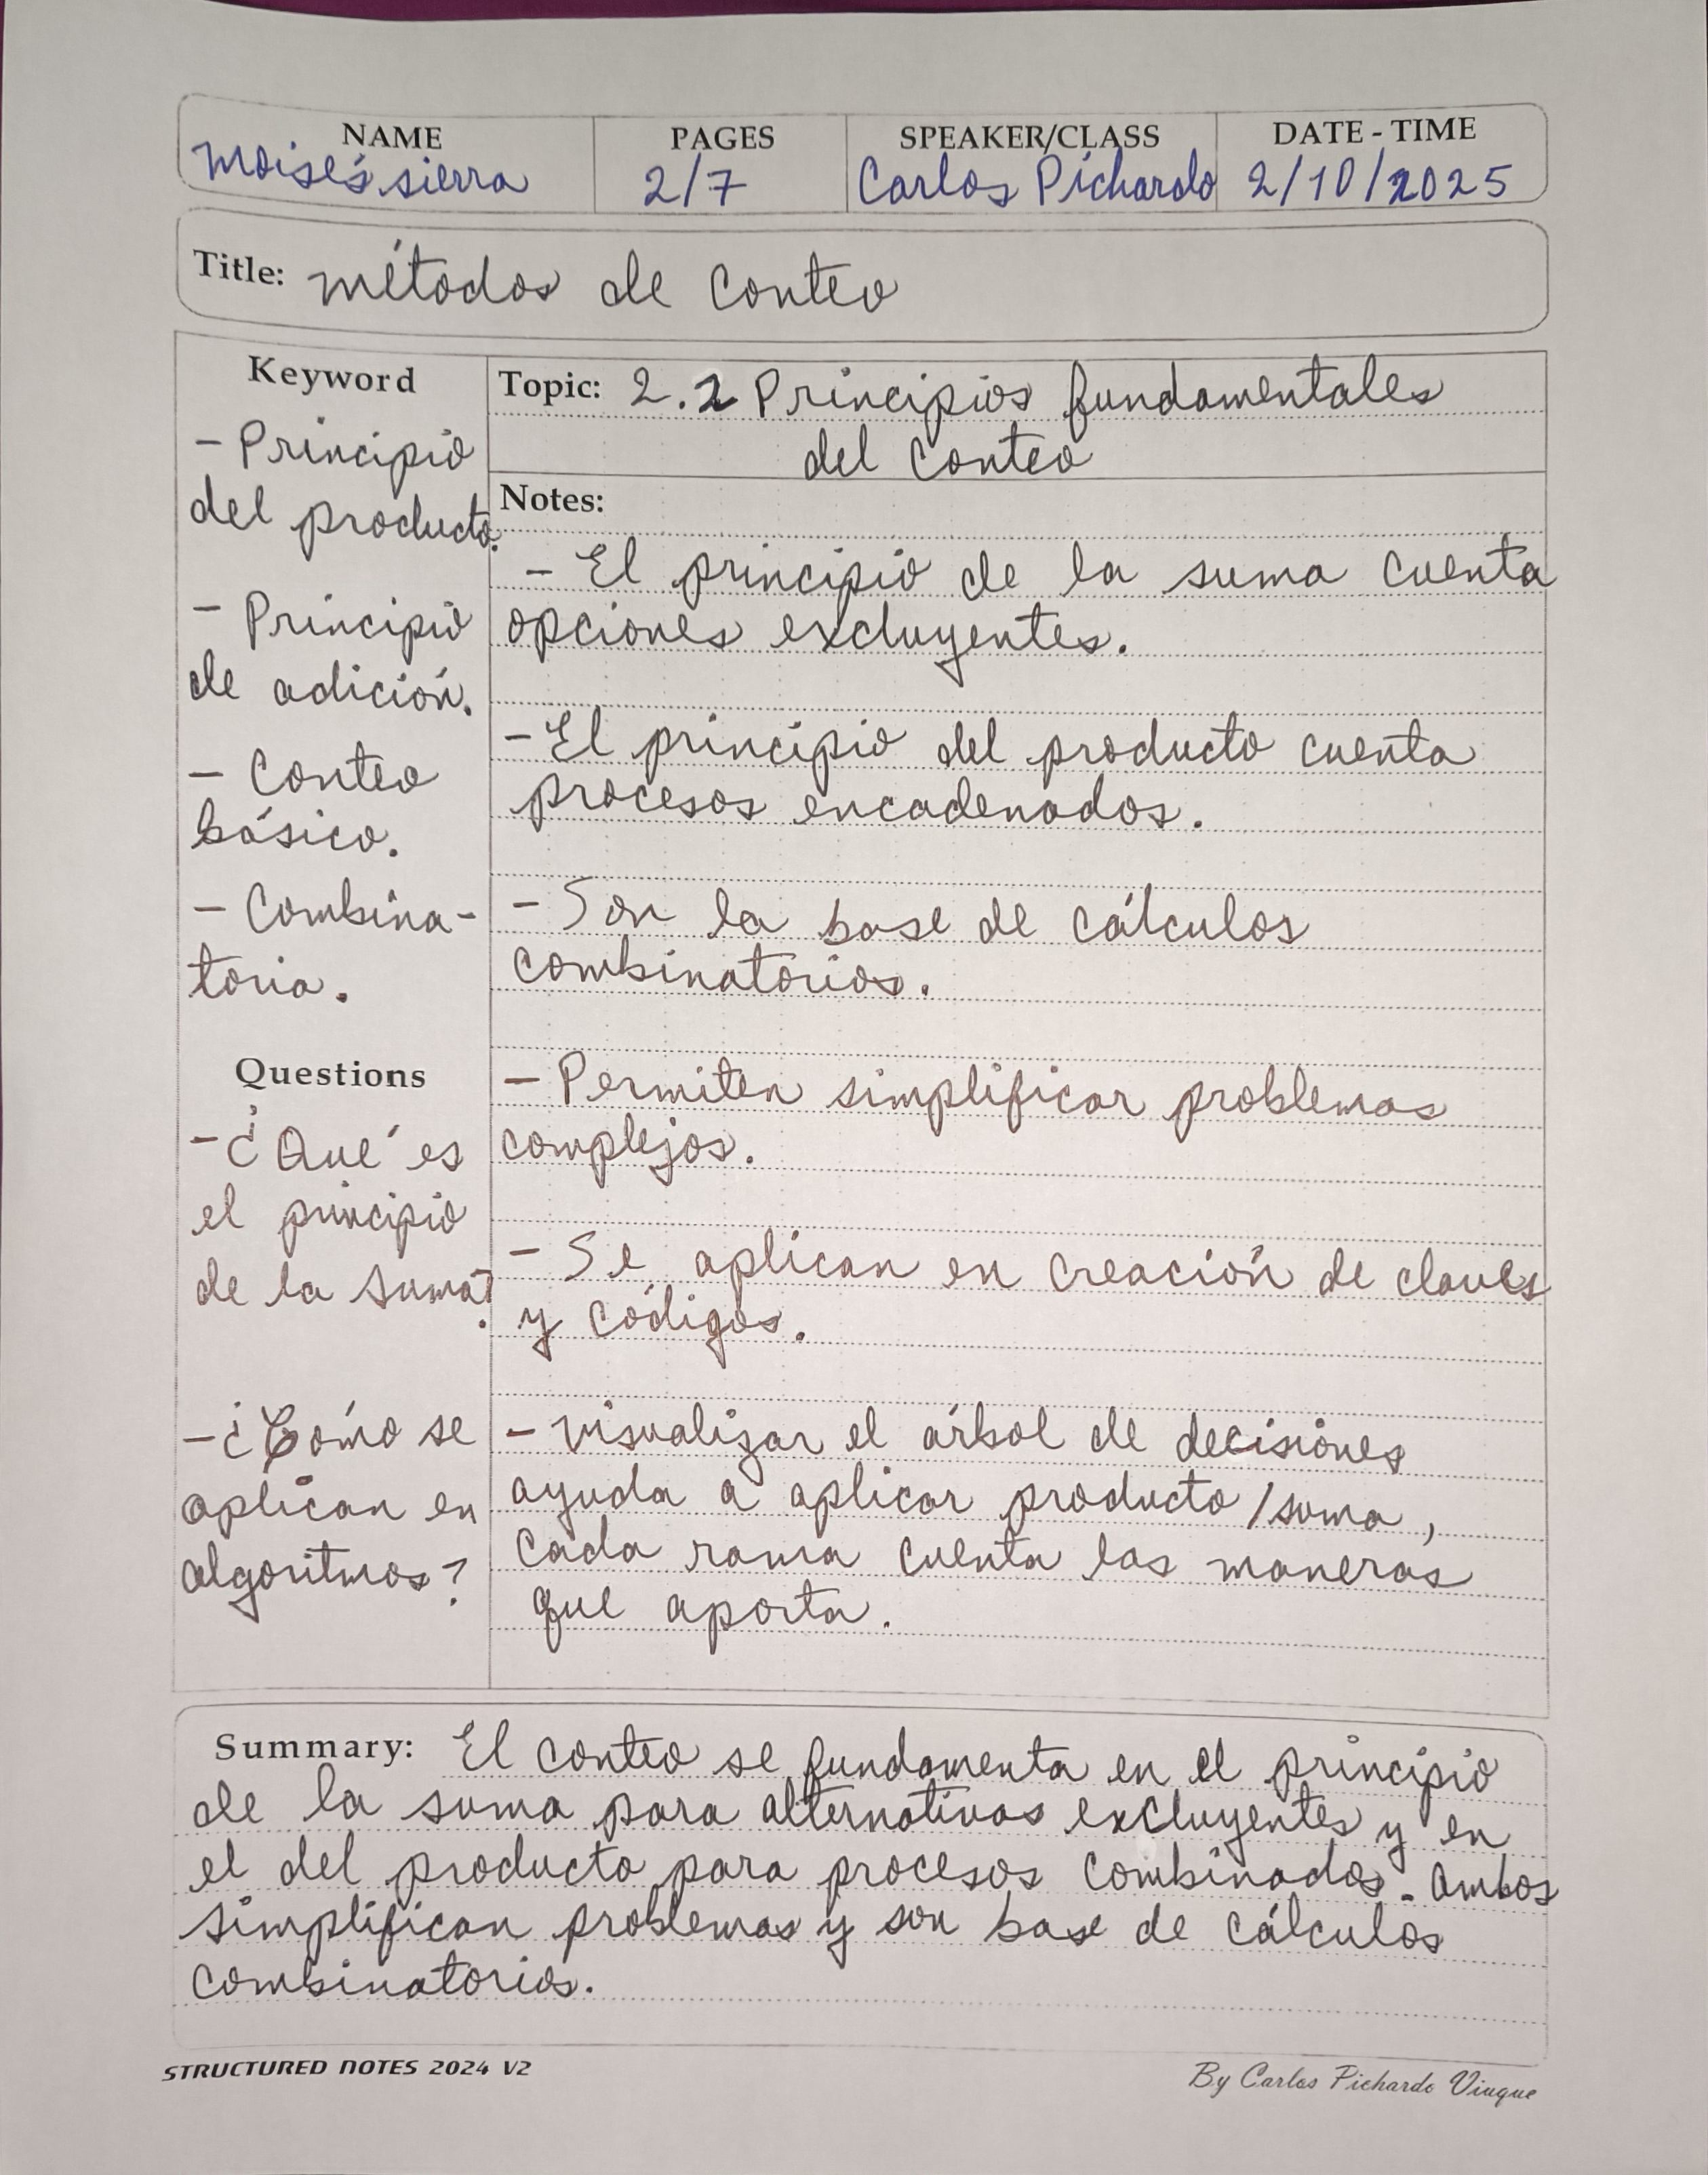 NAME PAGES SPEAKER/CLASS DATE - TIME
Moisés sierra 2/7 Carlos Pichardo 2/10/2025
Title: métodos de conteo
Keyword
- Principio
del producto.
- Principio
de adición.
- Conteo
básico.
- Combina-
toria.
Questions
- ¿Qué es
el principio
de la suma?
- ¿Cómo se
aplican en
algoritmos?
Topic: 2.2 Principios fundamentales
del conteo
Notes:
- El principio de la suma cuenta
opciones excluyentes.
- El principio del producto cuenta
procesos encadenados.
- Son la base de cálculos
combinatorios.
- Permiten simplificar problemas
complejos.
- Se aplican en creación de claves
y códigos.
- visualizar el árbol de decisiones
ayuda a aplicar producto/suma,
cada rama cuenta las maneras
que aporta.
Summary: El conteo se fundamenta en el principio
de la suma para alternativas excluyentes y en
el del producto para procesos combinados. Ambos
simplifican problemas y son base de cálculos
combinatorios.
STRUCTURED NOTES 2024 V2
By Carlos Pichardo Viuque